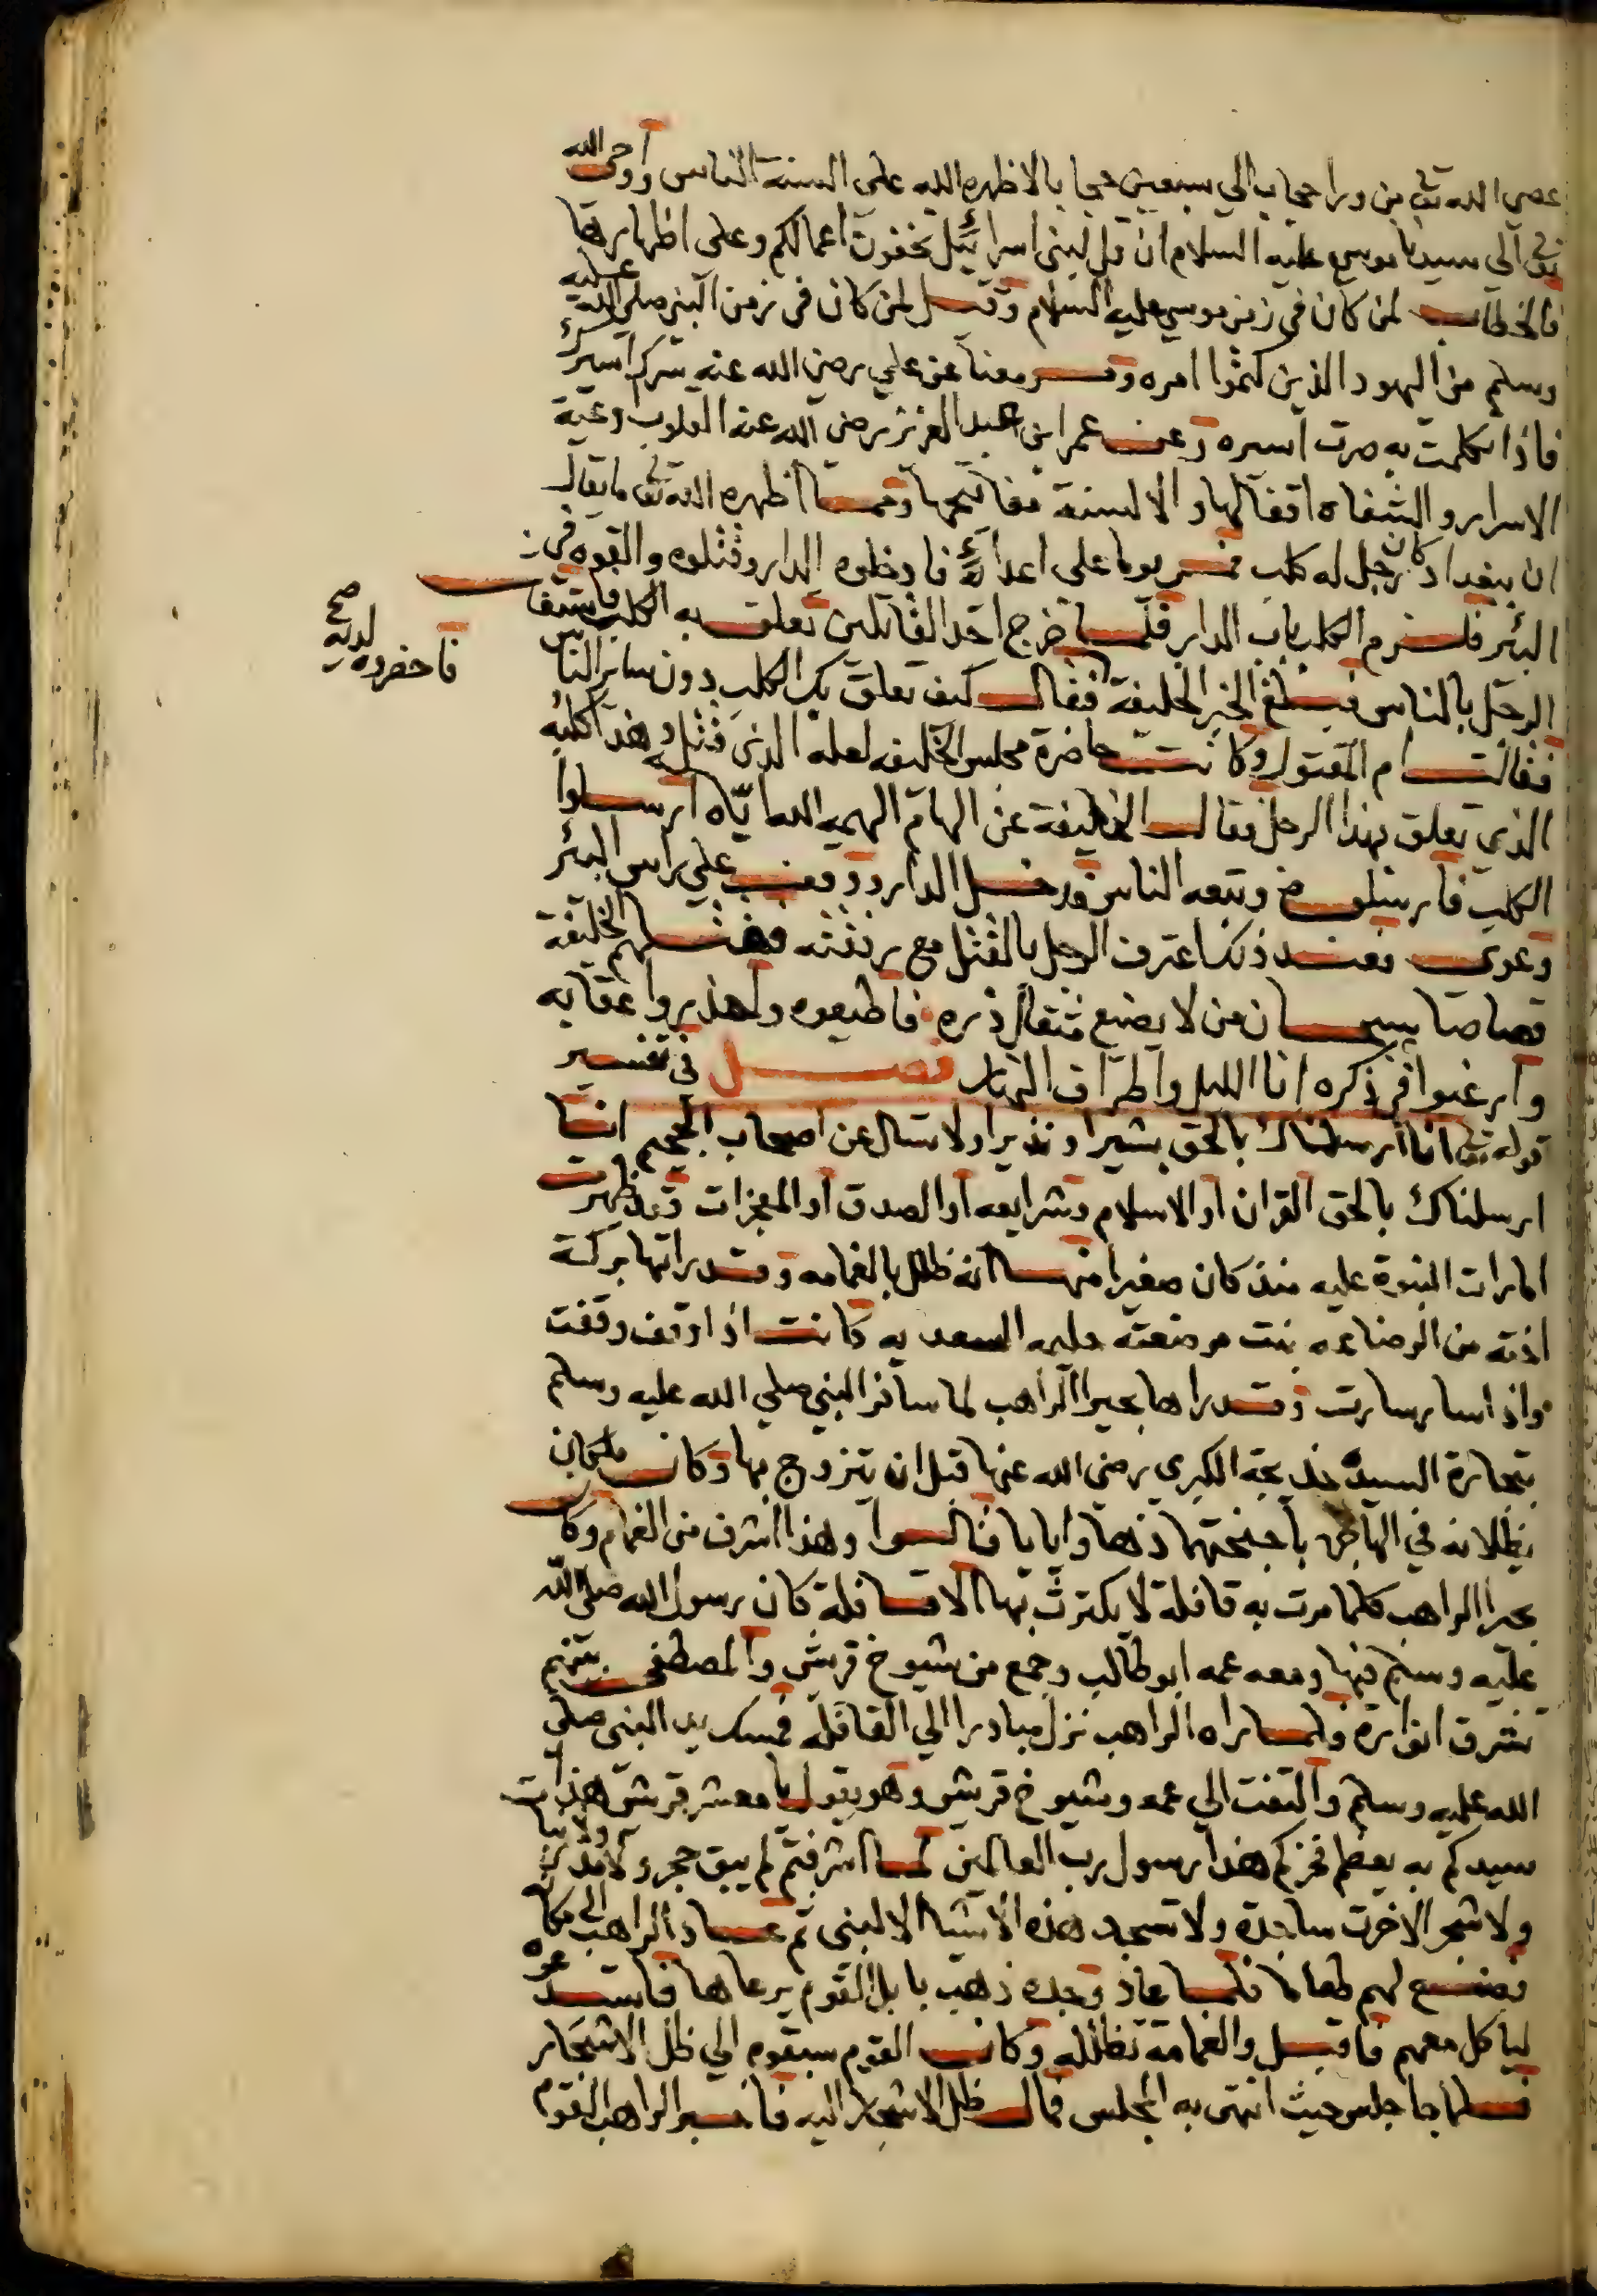 عصى الله تعالى من ورا حجاب الي سبعين حجابا لاظهره الله على السنة الناس واوحى الله
تعالى الي سيدنا موسي عليه السلام ان قل لبني اسرائيل تخفون اعمالكم وعلى اظهارها
فالخطاب لمن كان في زمن موسي عليه السلام وقيل لمن كان في زمن النبي صلى الله عليه
وسلم من اليهود الذين كتموا امره وقد معنا عن علي رضي الله عنه سرك اسيرك
فاذا تكلمت به صرت اسيره وعن عمر ابن عبد العزيز رضي الله عنه القلوب اوعية
الاسرار والشفاه اقفالها والالسنة مفاتيحها ومما اظهره الله تعالى ما يقال
ان ببغداد كان رجل له كلب فمر يوما على اعدائه فادخلوه الدار وقتلوه والقوه في
البئر فلزم الكلب باب الدار فلما خرج احد القاتلين تعلق به الكلب فاستغاث
الرجل بالناس فبلغ الخبر الخليفة فقال كيف تعلق بك الكلب دون ساير الناس
فاحضروه لديه صح
فقالت ام المقتول وكانت حاضرة مجلس الخليفه لعله الذي قتله وهذا كلبه
الذي تعلق بهذا الرجل فقال الخليفة عن الهام الهمه الله اياه ارسلوا
الكلب فارسلوه وتبعه الناس فدخل الدار ووقف علي راس البئر
وعوى فعند ذلك اعترف الرجل بالقتل مع رفقته فقتلهم الخليفة
قصاصا سبحان من لا يضيع مثقال ذره فاطيعوه واحذروا عقابه
وارغبوا في ذكره انا الليل واطراف النهار فصل في تفسير
قوله تعالى انا ارسلناك بالحق بشيرا ونذيرا ولا تسال عن اصحاب الجحيم انا
ارسلناك بالحق القران او الاسلام وشرايعه او الصدق او المعجزات وقد ظهرت
امارات النبوة عليه منذ كان صغيرا منها انه ظلل بالغمامه وقد راتها بركة
اخته من الرضاعه بنت مرضعته حليمه السعديه كانت اذا وقف وقفت
واذا سار سارت وقد راها بحيرا الراهب لما سافر النبي صلي الله عليه وسلم
بتجارة السيدة خديجة الكبري رضي الله عنها قبل ان يتزوج بها وكان ملكان
يظللانه في الهاجره باجنحتهما ذهابا وايابا قالوا وهذا اشرف من الغمام وكان
بحيرا الراهب كلما مرت به قافلة لا يكترث بها الا قافلة كان رسول الله صلى الله
عليه وسلم فيها ومعه عمه ابو طالب وجمع من شيوخ قريش والمصطفى بينهم
تشرق انواره ولما راه الراهب نزل مبادرا الي القافله فمسك يد النبي صلى
الله عليه وسلم والتفت الي عمه وشيوخ قريش وهو يقول يا معشر قريش هذا
سيدكم به يعظم فخركم هذا رسول رب العالمين لما اشرفتم لم يبق حجر ولا مدر ولا نبات
ولا شجر الا خرت ساجدة ولا تسجد هذه الاشيا الا لنبي ثم عاد الراهب الى مكانه
فصنع لهم طعاما فلما عاد وجده ذهب بابل القوم يرعاها فاستدعوه
لياكل معهم فاقبل والغمامة تظلله وكان القوم سبقوه الي ظل الاشجار
فلما جا جلس حيث انتهى به المجلس فمال ظل الاشجار اليه فاخبر الراهب القوم